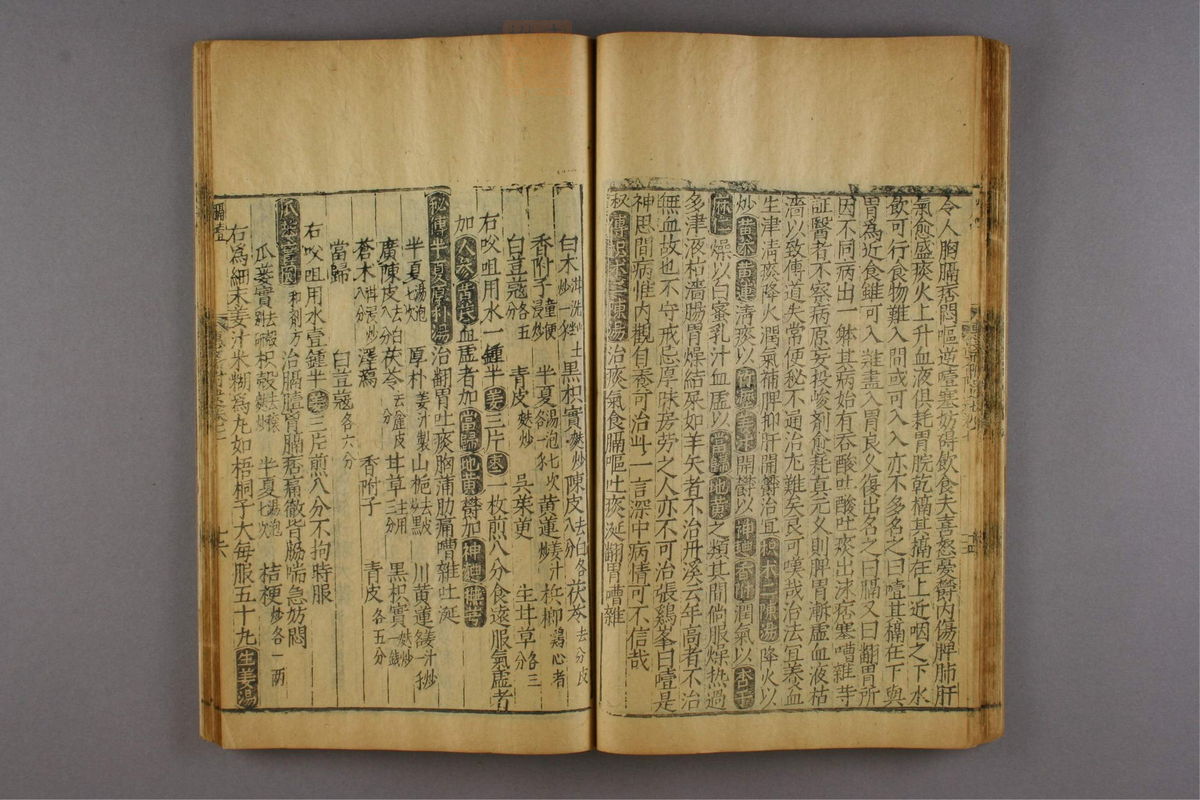 令人胸膈痞悶嘔逆噎塞妨礙飲食夫喜怒憂鬱內傷脾肺肝
氣愈盛痰火上升血液俱耗胃脘乾槁其槁在上近咽之下水
飲可行食物難入間或可入入亦不多名之曰噎其槁在下與
胃為近食雖可入難盡入胃良久復出名之曰膈又曰翻胃所
因不同病出一躰其病始有吞酸吐酸痰出沫痞塞嘈雜等
証醫者不察病原妄投峻劑愈耗真元久則脾胃漸虛血液枯
濇以致傳道失常便秘不通治尤難矣良可嘆哉治法宜養血
生津清痰降火潤氣補脾抑肝開鬱治宜枳术二陳湯降火以
炒黃芩黃連清痰以竹瀝姜汁開鬱以神麯香附潤氣以杏仁
麻仁燥以白蜜乳汁血虛以當歸地黃之類其間倘服燥熱過
多津液枯濇腸胃燥結屎如羊矢者不治丹溪云年高者不治
無血故也不守戒忌厚味房勞之人亦不可治張鷄峯曰噎是
神思間病惟內觀自養可治此一言深中病情可不信哉
秘傳枳术二陳湯治痰氣食膈嘔吐痰涎翻胃嘈雜
白术 黑枳實麩炒 陳皮去白各八分 茯苓去皮
香附子童便浸炒 半夏湯泡七次各一 黃連姜汁炒 梹榔鷄心者
白豆蔻各五 青皮麩炒 吳茱萸 生甘草各三分
右㕮咀用水一鍾半姜三片棗一枚煎八分食遠服氣虛者
加人參黃芪血虛者加當歸地黃鬱加神麯撫芎
秘傳半夏厚朴湯治翻胃吐痰胸滿肋痛嘈雜吐涎
半夏湯泡七次 厚朴姜汁製 山梔去皮炒黑 川黃連姜汁炒
廣陳皮去白八分 茯苓去皮 甘草生用三分 黑枳實麩炒一錢
蒼木 澤瀉 香附子 青皮各五分
當歸 白豆蔻各六分
右㕮咀用水壹鍾半姜三片煎八分不拘時服
瓜蔞實丸和劑方治膈噎胷膈痞痛徹背脇喘急妨悶
瓜蔞實別研 枳殼去穰麩炒 半夏湯泡七次 桔梗炒各一兩
右為細末姜汁米糊為丸如梧桐子大每服五十九生姜湯
膈噎
十六